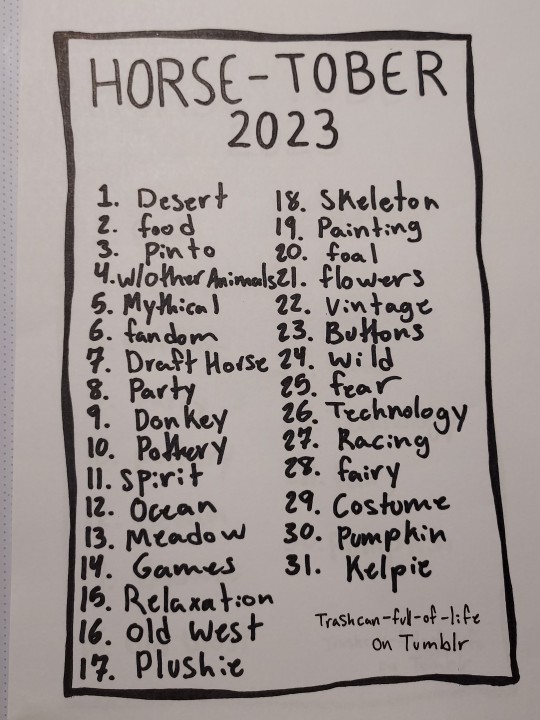 HORSE-TOBER
2023
1. Desert
2. food
3. Pinto
4. w/other Animals
5. Mythical
6. fandom
7. Draft Horse
8. Party
9. Donkey
10. Pottery
11. Spirit
12. Ocean
13. Meadow
14. Games
15. Relaxation
16. Old West
17. Plushie
18. Skeleton
19. Painting
20. foal
21. flowers
22. Vintage
23. Buttons
24. Wild
25. fear
26. Technology
27. Racing
28. fairy
29. Costume
30. Pumpkin
31. Kelpie
Trashcan-full-of-life
on Tumblr